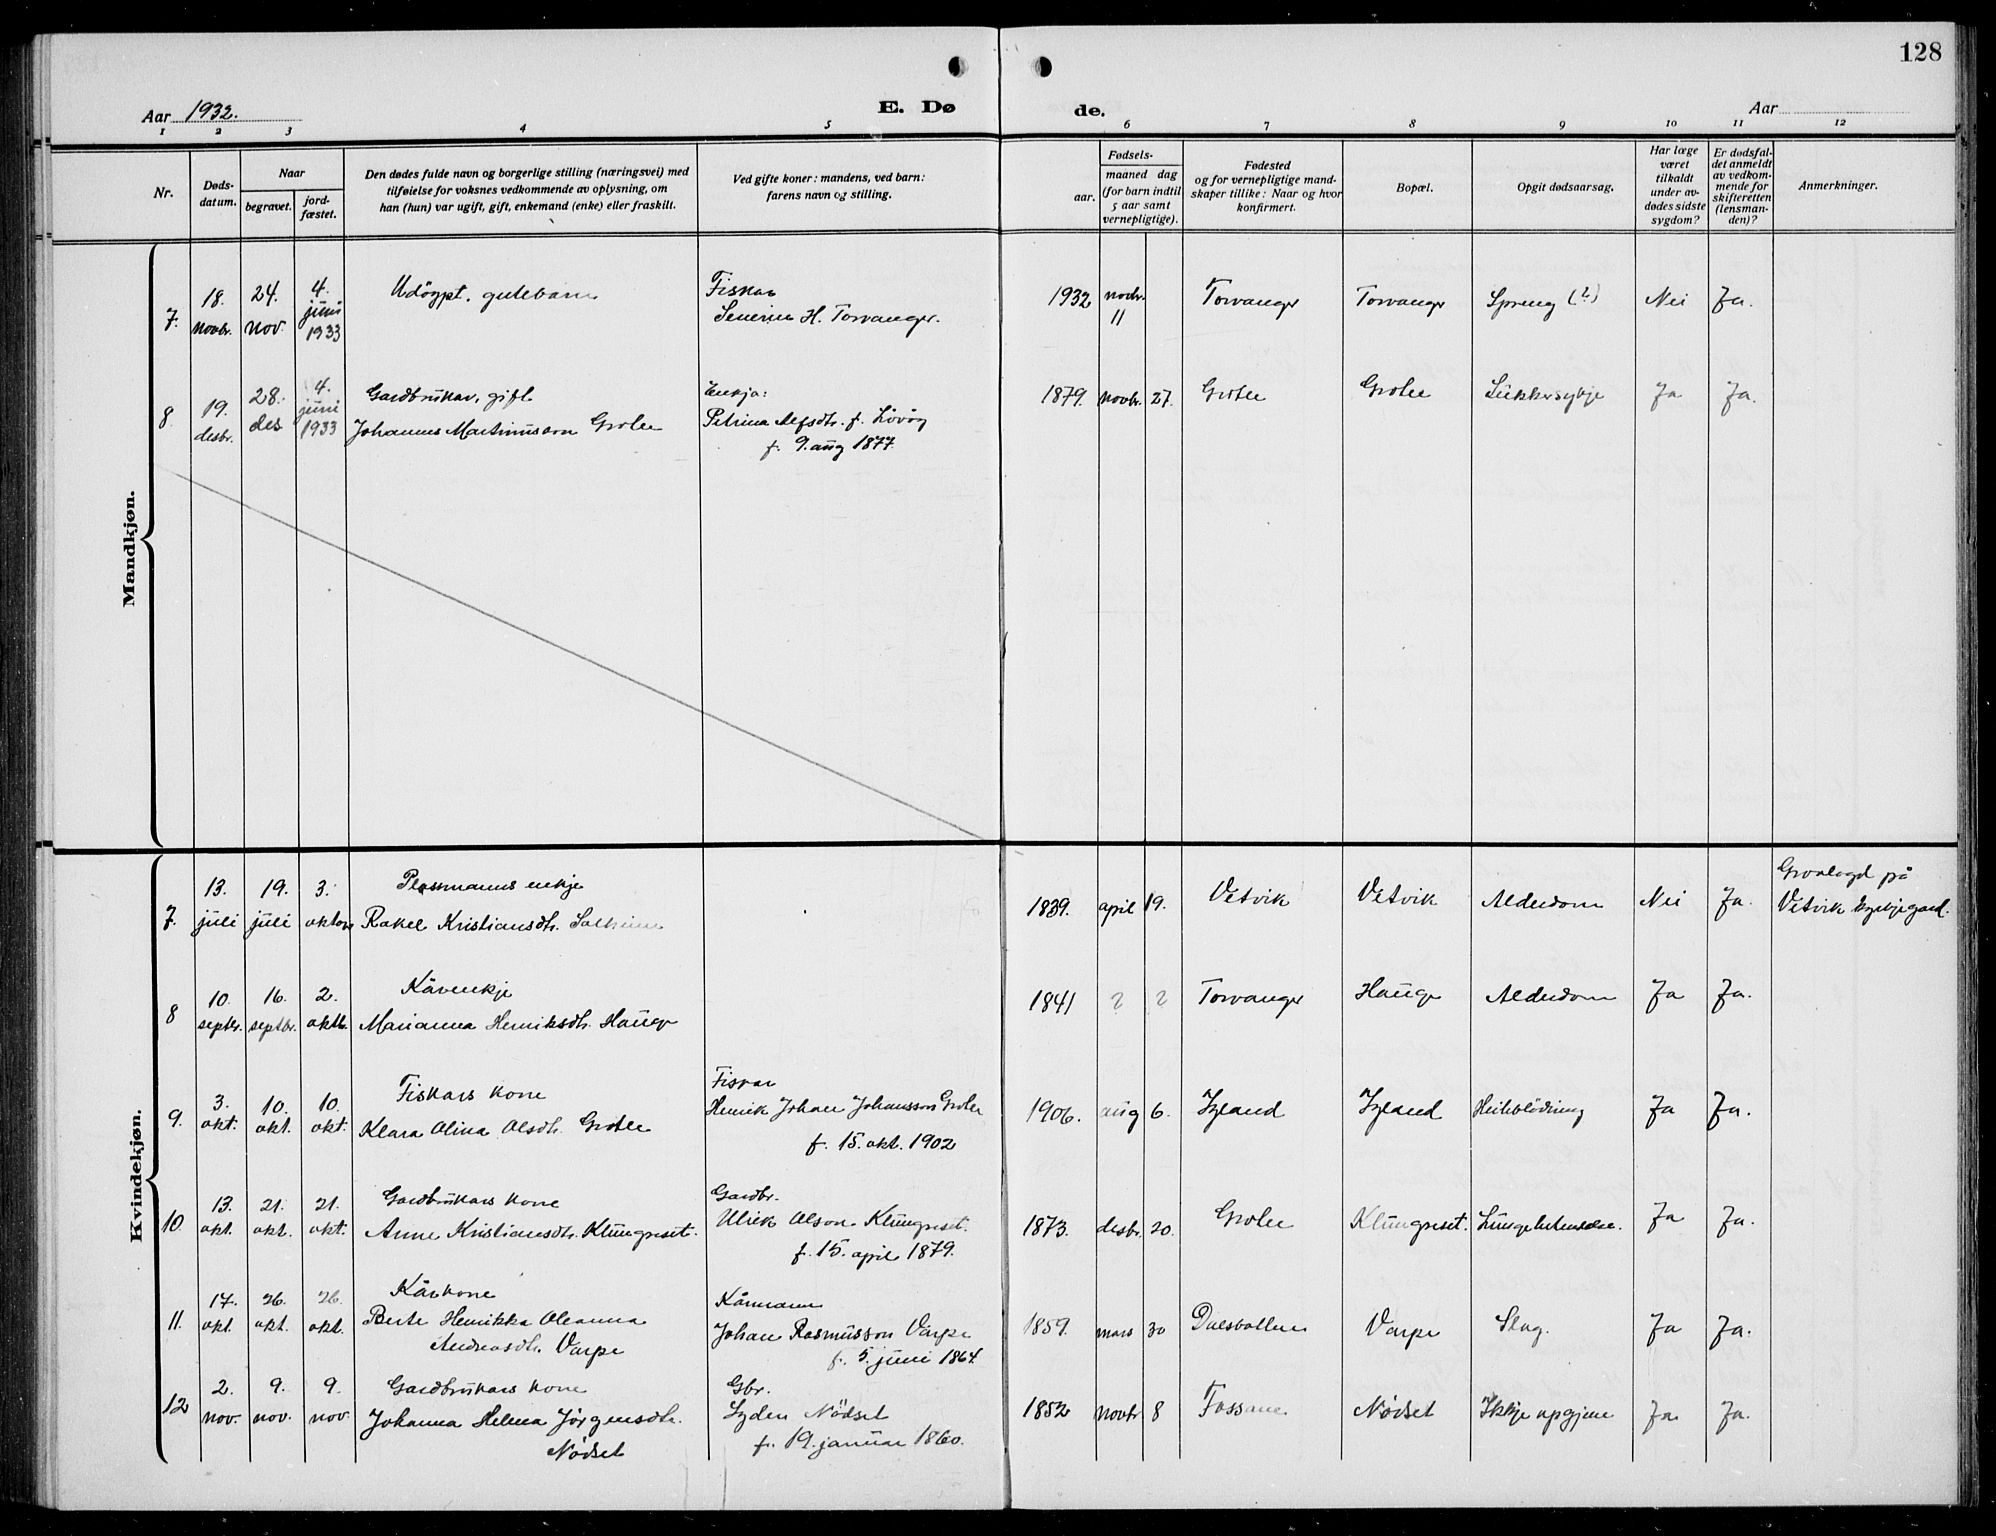 128
Aar 1932.
E. Dø
de.
Aar
1 2 3 4 5 6 7 8 9 10 11 12
Nr.
Døds-
datum.
Naar
begravet.
jord-
fæstet.
Den dødes fulde navn og borgerlige stilling (næringsvei) med
tilføielse for voksnes vedkommende av oplysning, om
han (hun) var ugift, gift, enkemand (enke) eller fraskilt.
Ved gifte koner: mandens, ved barn:
farens navn og stilling.
Fødsels-
aar.
maaned dag
(for barn indtil
5 aar samt
vernepligtige).
Fødested
og for vernepligtige mand-
skaper tillike: Naar og hvor
konfirmert.
Bopæl.
Opgit dødsaarsag.
Har læge
været
tilkaldt
under av-
dødes sidste
sygdom?
Er dødsfal-
det anmeldt
av vedkom-
mende for
skifteretten
(lensman-
den)?
Anmerkninger.
Mandkjøn.
7. 18. novbr. 24. nov. 4. juni 1933
Udöypt. gutebarn
Fiskar
Severin H. Torvanger.
1932 novbr. 11 Torvanger Torvanger Spreng (?) Nei Ja.
8 19. desbr. 28. des 4. juni 1933
Gardbrukar, gift
Johannes Martinusson Grotle
Enkja:
Petrina Alfsdtr. f. Lövöy
f. 9. aug 1877.
1879. novbr. 27. Grotle Grotle Sukkersykje Ja Ja.
Kvindekjøn.
7. 13. juli 19. juli 3. oktbr
Plassmanns enkje
Rakel Kristiansdtr. Solheim
1839. april 19. Vetvik Vetvik Alderdom Nei Ja.
Gravlagd på
Vetvik kyrkjegard.
8 10. septbr. 16. septbr. 2. oktb.
Kårenkje
Marianna Henriksdtr. Hauge
1841 ? ? Torvanger Hauge Alderdom Ja Ja.
9. 3. okt. 10. okt. 10. okt.
Fiskars kone
Klara Olina Olsdtr. Grotle
Fiskar
Henrik Johan Johansson Grotle
f. 15. okt. 1902
1906. aug 6. Iglan̄d Igland Heileblödning Ja Ja.
10. 13. okt. 21. okt. 21. okt.
Gardbrukars kone
Anne Kristiansdtr. Klungreset.
Gardbr.
Ulrik Olson Klungreset.
f. 15. april 1879.
1873. desbr. 20. Grotle Klungreset. Lungebetendelse. Ja Ja.
11. 17. okt. 26. okt. 26. okt.
Kårkone
Berte Henrikka Oleanna
Andreasdtr. Varpe
Kårmann
Johan Rasmusson Varpe
f. 5. juni 1864.
1859. mars 30 Dalsbotten Varpe Slag. Ja Ja.
12 2. nov. 9. nov. 9. nov.
Gardbrukars kone
Johanna Helena Jörgensdtr.
Nödset
Gbr.
Lyder Nödset
f. 19. januar 1860.
1852 novbr 8 Fossane Nödset Ikkje upgjeve Ja Ja.